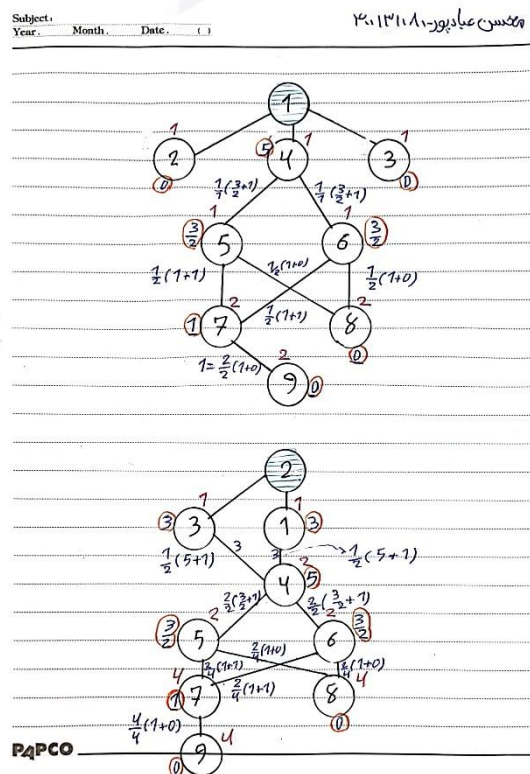 Subject:
Year. Month. Date. ( )
محسن عبادپور-۴۰۱۳۱۰۸۱
1
1 1 1
2 5 4 3
0 0
1/1(3/2+1) 1/1(3/2+1)
1 1
3/2 5 6 3/2
1/2(1+1) 1/2(1+0) 1/2(1+0)
2 1/2(1+1) 2
1 7 8
0
1=2/2(1+0) 2
9 0
2
1 1
3 3 1 3
1/2(5+1) 3 3 1/2(5+1)
2
4 5
2/2(3/2+1) 2/2(3/2+1)
2 2
3/2 5 6 3/2
2/4(1+0)
2/4(1+1) 2/4(1+0)
4 2/4(1+1) 4
1 7 8
0
4/4(1+0)
4
9
0
PAPCO